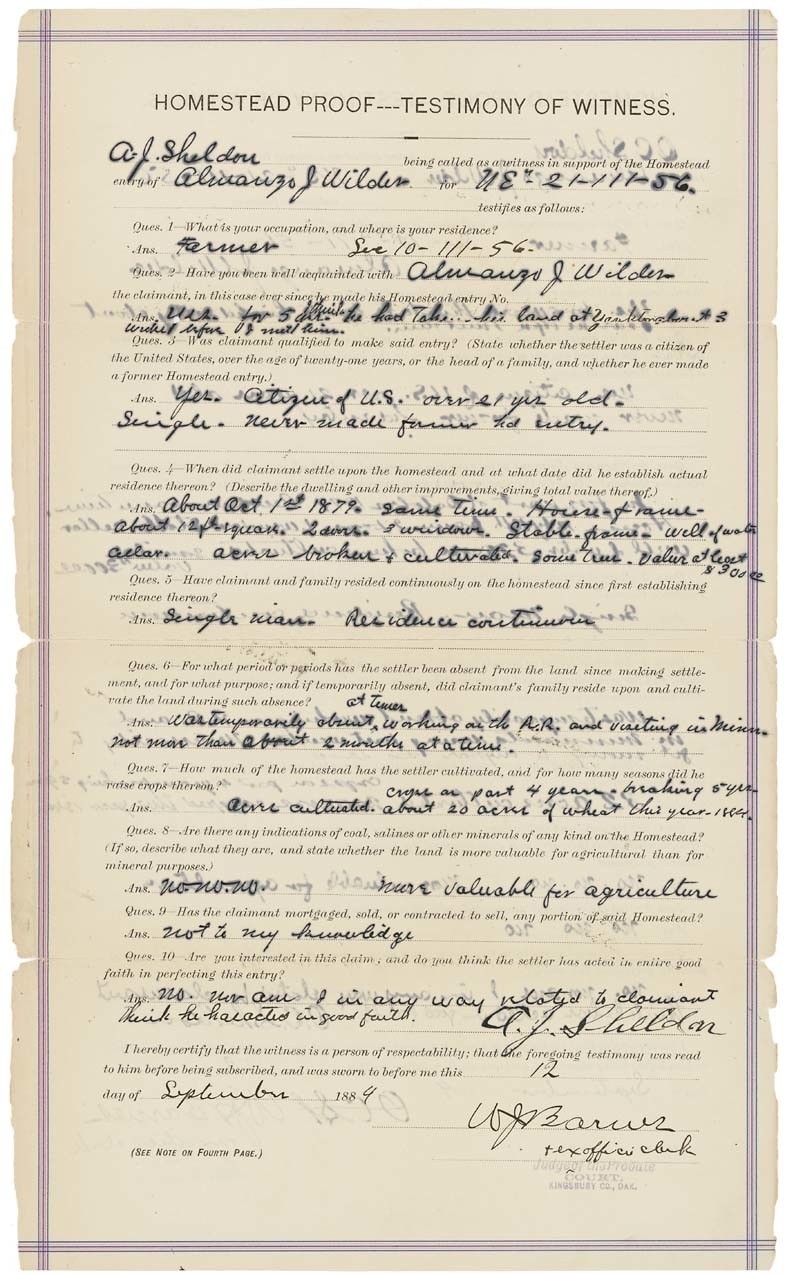 HOMESTEAD PROOF---TESTIMONY OF WITNESS.
A. J. Sheldon being called as a witness in support of the Homestead
entry of Almanzo J Wilder for NE" - 21-111-56.
testifies as follows:
Ques. 1—What is your occupation, and where is your residence?
Ans. Farmer Sec 10-111-56-
Ques. 2—Have you been well acquainted with Almanzo J Wilder
the claimant, in this case ever since he made his Homestead entry No.
Ans. for 5 yrs. I think he had his land at Yankton about 3
weeks before I met him.
Ques. 3—Was claimant qualified to make said entry? (State whether the settler was a citizen of
the United States, over the age of twenty-one years, or the head of a family, and whether he ever made
a former Homestead entry.)
Ans. Yes. Citizen of U.S. over 21 yrs old.
Single. Never made former hd entry.
Ques. 4—When did claimant settle upon the homestead and at what date did he establish actual
residence thereon? (Describe the dwelling and other improvements, giving total value thereof.)
Ans. About Oct 1st 1879. Same time. House-frame-
about 12 ft-square. 2 doors. 3 windows. Stable-frame- well of water
cellar. acres broken & cultivated. some trees. Value at least
$300.00
Ques. 5—Have claimant and family resided continuously on the homestead since first establishing
residence thereon?
Ans. Single man- Residence continuous
Ques. 6—For what period or periods has the settler been absent from the land since making settle-
ment, and for what purpose; and if temporarily absent, did claimant's family reside upon and culti-
vate the land during such absence? at times
Ans. Was temporarily absent, working on the R.R. and visiting in Minn-
not more than about 2 months at a time.
Ques. 7—How much of the homestead has the settler cultivated, and for how many seasons did he
raise crops thereon? crops on part 4 years - breaking 5 yrs-
Ans. acres cultivated. about 20 acres of wheat this year-1884.
Ques. 8—Are there any indications of coal, salines or other minerals of any kind on the Homestead?
(If so, describe what they are, and state whether the land is more valuable for agricultural than for
mineral purposes.)
Ans. no-no-no. more valuable for agriculture
Ques. 9—Has the claimant mortgaged, sold, or contracted to sell, any portion of said Homestead?
Ans. not to my knowledge
Ques. 10—Are you interested in this claim; and do you think the settler has acted in entire good
faith in perfecting this entry?
Ans. No. nor am I in any way related to claimant
think he has acted in good faith.
A. J. Sheldon
I hereby certify that the witness is a person of respectability; that the foregoing testimony was read
to him before being subscribed, and was sworn to before me this 12
day of September 1884
W J Barnes
& ex officio clerk
(SEE NOTE ON FOURTH PAGE.)
Judge of the Probate
COURT.
KINGSBURY CO., DAK.